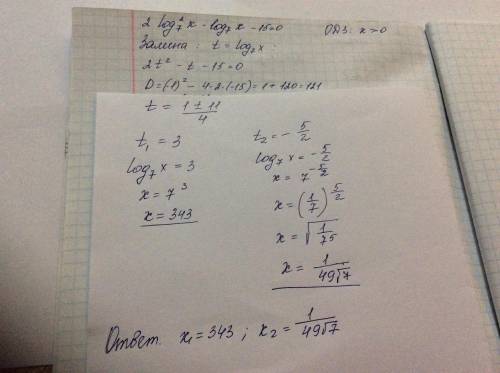 2 log₇² x - log₇ x - 15 = 0     ОДЗ: x > 0
Замена: t = log₇ x
2t² - t - 15 = 0
D = (-1)² - 4·2·(-15) = 1 + 120 = 121
t = (1 ± 11)/4
t₁ = 3     t₂ = - 5/2
log₇ x = 3     log₇ x = - 5/2
x = 7³     x = 7^(-5/2)
x = 343     x = (1/7)^(5/2)
x = √(1/7⁵)
x = 1/(49√7)
Ответ. x₁ = 343 ; x₂ = 1/(49√7)